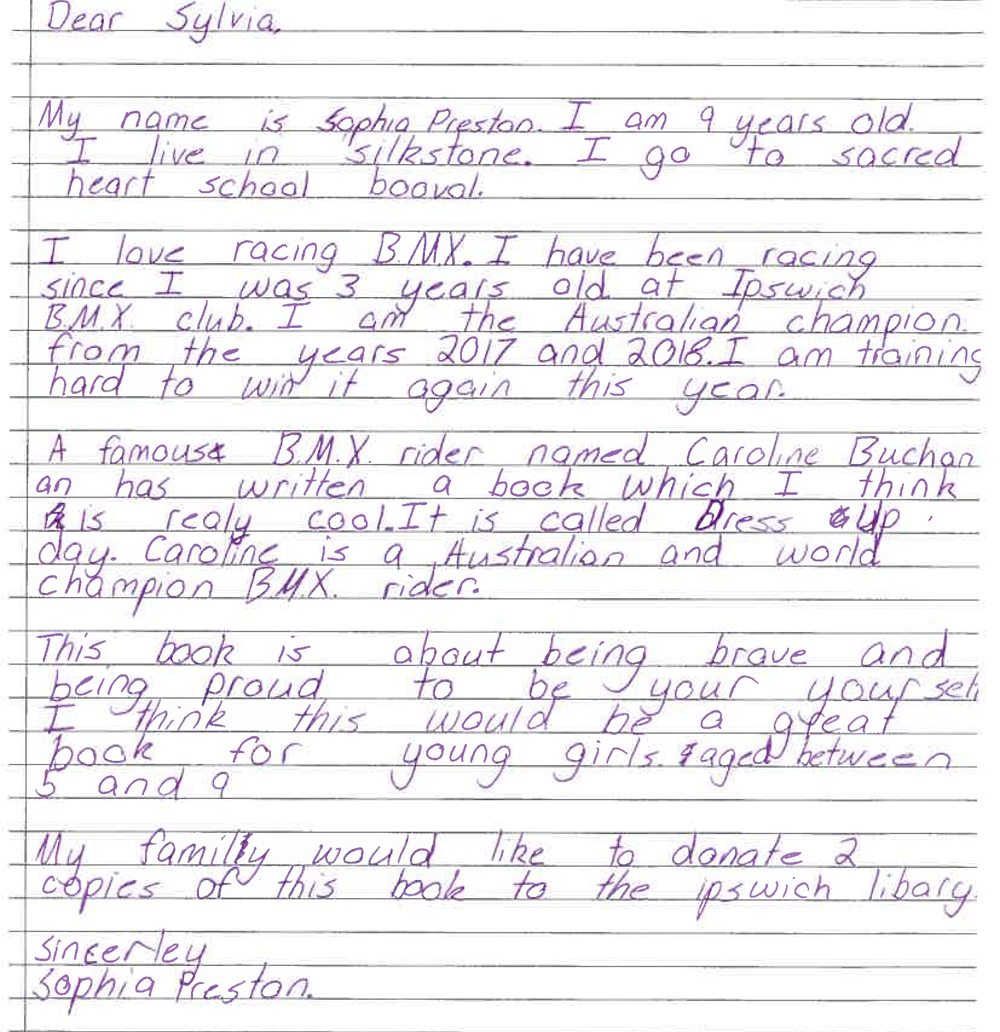 Dear Sylvia,
My name is Sophia Preston. I am 9 years old.
I live in silkstone. I go to sacred
heart school booval.
I love racing B.M.X. I have been racing
since I was 3 years old at Ipswich
B.M.X. club. I am the Australian champion.
from the years 2017 and 2018. I am training
hard to win it again this year.
A famous B.M.X. rider named Caroline Buchan
an has written a book which I think
is realy cool. It is called Dress Up
day. Caroline is a Australian and world
champion B.M.X. rider.
This book is about being brave and
being proud to be your yourself
I think this would be a great
book for young girls. aged between
5 and 9
My family would like to donate 2
copies of this book to the ipswich libary.
sincerley
Sophia Preston.